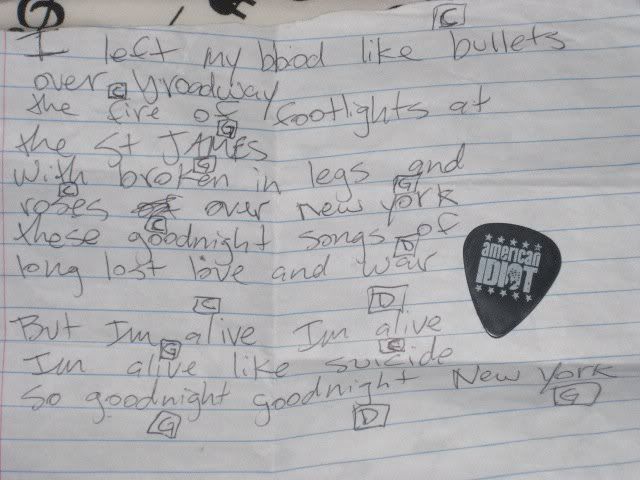 C
I left my blood like bullets
over C broadway
the fire of footlights at
G
the St JAMES
G
with broken in legs and
C G
roses over new york
C
these goodnight songs of
D
long lost love and war
C D
But Im alive Im alive
G C
Im alive like suicide
So goodnight goodnight New York
G D G
american
IDIOT